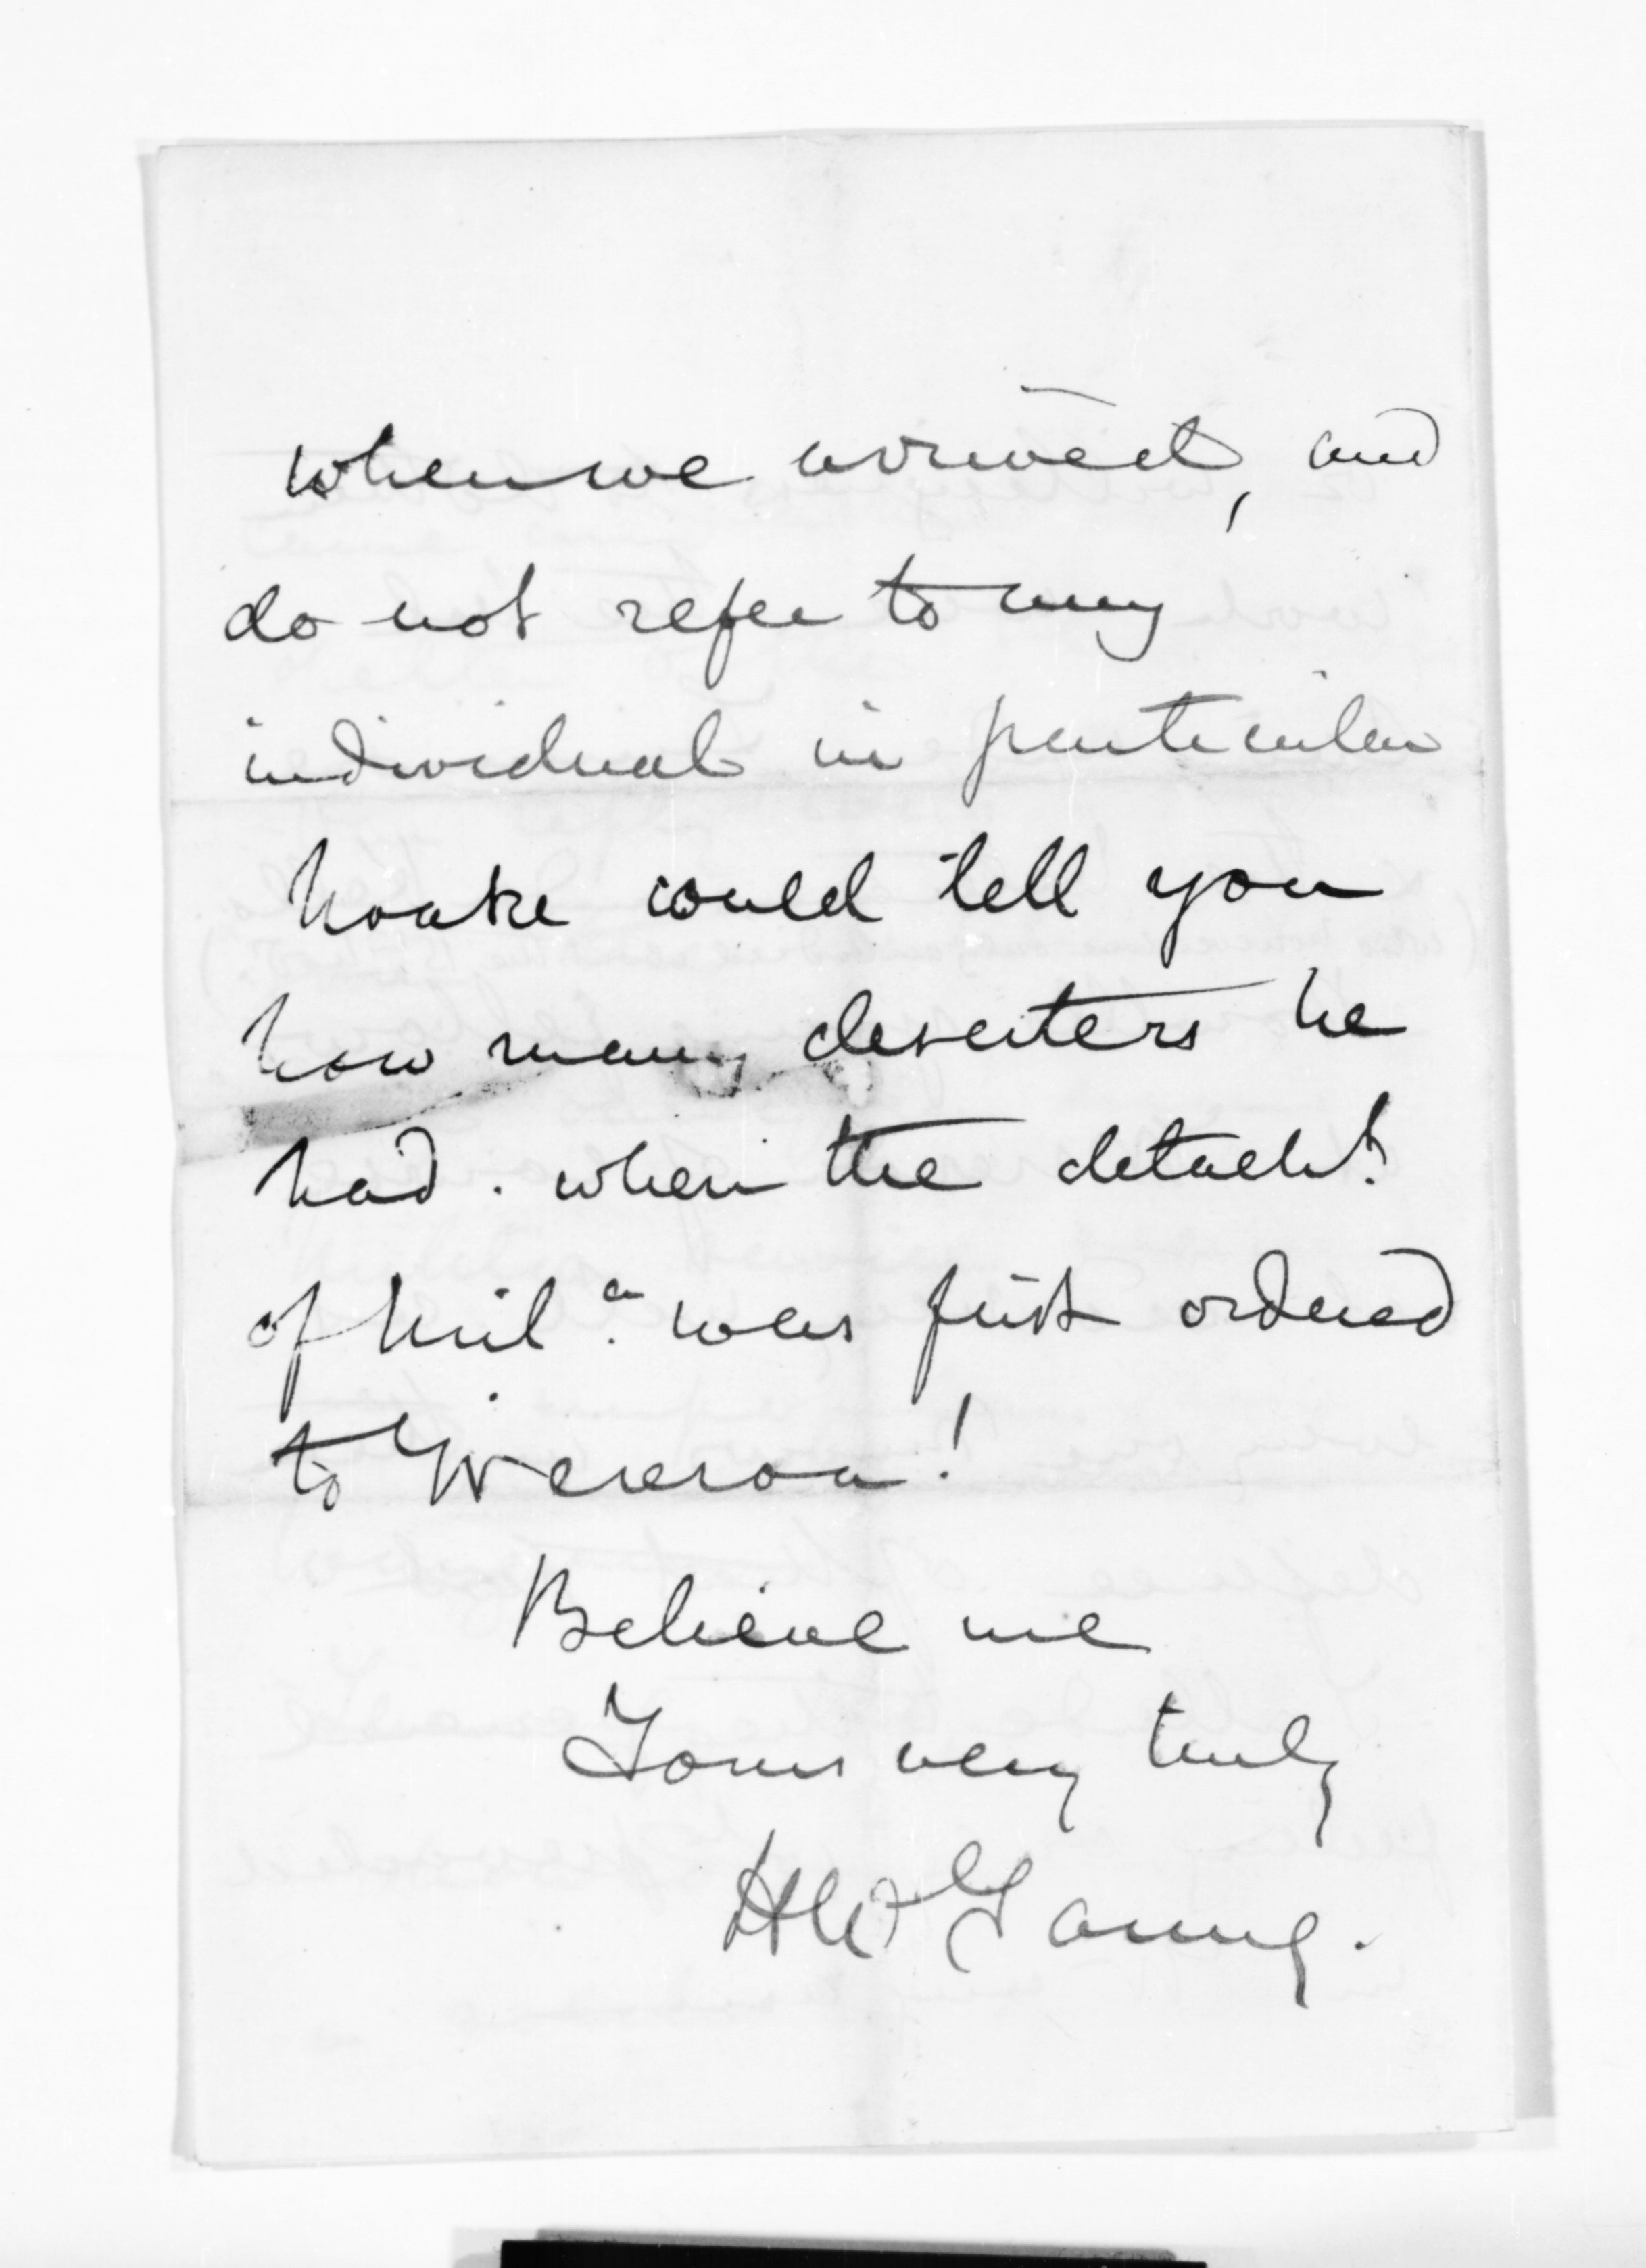 when we arrived, and
do not refer to any
individual in particular
Noake could tell you
how many deserters he
had. when the detacht.
of Mila. was first ordered
to Weraroa!
Believe me
Yours very truly
HW Young.